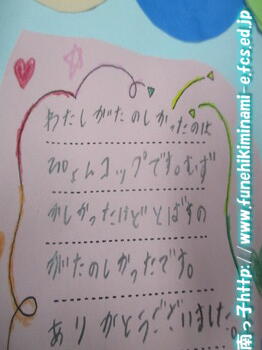 わたしがたのしかったのは
ぴょんコップです。むず
かしかったけどとばすの
がたのしかったです。
ありがとうございました。
南っ子http://www.funehikiminami-e.fcs.ed.jp